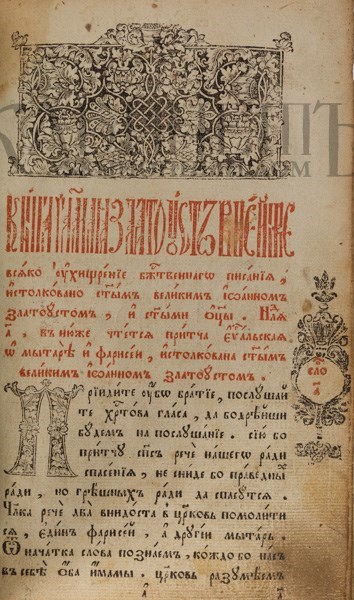 Книга глаголемая Златоустъ в нейже
всяко оухищреніе бж҃твеннагѡ писанїѧ,
истолковано ст҃ымъ великимъ Іѡанномъ
Златоустомъ, и ст҃ыми оц҃ы. Нл҃ѧ
а҃, въ нюже чтется притча еѵ҃льская
ѡ мытарѣ и фарисеи, истолкована ст҃ымъ
великимъ Іѡанномъ Златоустомъ.
сло
а҃
Прїидите оубѡ братїе, послушай
те хр҃това гласа, да бодрѣйши
будемъ на послушанїе. сїю бо
притчу сп҃съ рече нашего ради
спасенїя, не сниде бо праведных
ради, но грѣшныхъ ради да спасутся.
Чл҃ка рече два внидоста в црк҃овь помолити
ся, единъ фарисей, а другїи мытарь.
Ѿ начатка слова познаемъ, кождо бо насъ
въ себѣ ѻба имамы. црк҃овь разумѣемъ
а҃